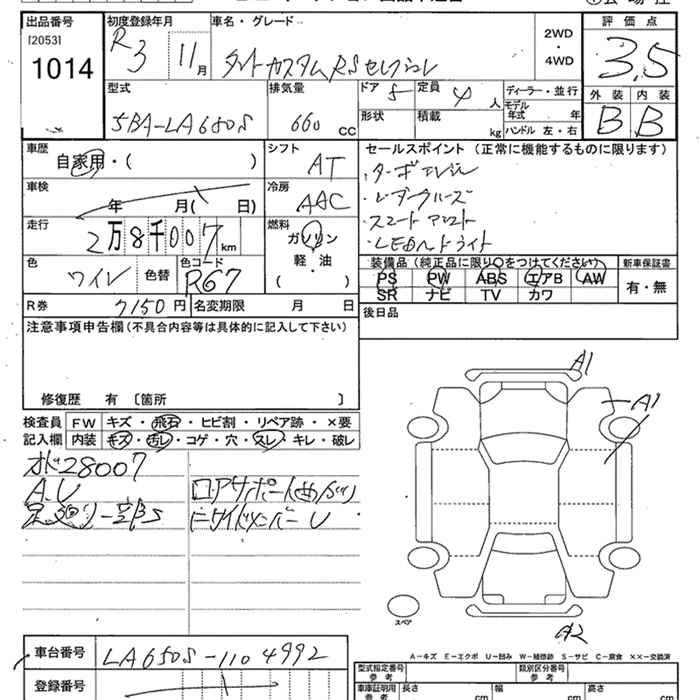 出品番号 初度登録年月 車名・グレード 評価点
[2053]
1014
R3 11月 タントカスタムRSセレクション 2WD・4WD 3,5
型式 排気量 ドア 5 定員 4人 ディーラー・並行 外装 内装
5BA-LA650S 660cc 形状 積載 kg モデル年式 年 B B
ハンドル 左・右
車歴 シフト セールスポイント(正常に機能するものに限ります)
自家用・( ) AT ・ターボエンジン
車検 冷房 ・レーダークルーズ
年 月( 日) AAC ・スマートアシスト
走行 燃料 ・LEDヘッドライト
2万8千007km ガソリン
軽・油
( )
色 色替 色コード 装備品(純正品に限り○をつけてください) 新車保証書
ワイン R67 PS PW ABS エアB AW 有・無
SR ナビ TV カワ
R券 7150円 名変期限 月 日 後日品
注意事項申告欄(不具合内容等は具体的に記入して下さい)
修復歴 有 〔箇所 〕
検査員 FW キズ・飛石・ヒビ割・リペア跡・×要
記入欄 内装 キズ・汚レ・コゲ・穴・スレ・キレ・破レ
オド28007
A.U ロアサポート曲(サビ)
足廻り一部S
A1
A1
A2
スペア
A=キズ E=エクボ U=凹み W=補修跡 S=サビ C=腐食 ××=交換済
車台番号 LA650S-1104992
登録番号
型式指定番号 参考 類別区分番号 参考
車庫証明用 参考 長さ cm 幅 cm 高さ cm